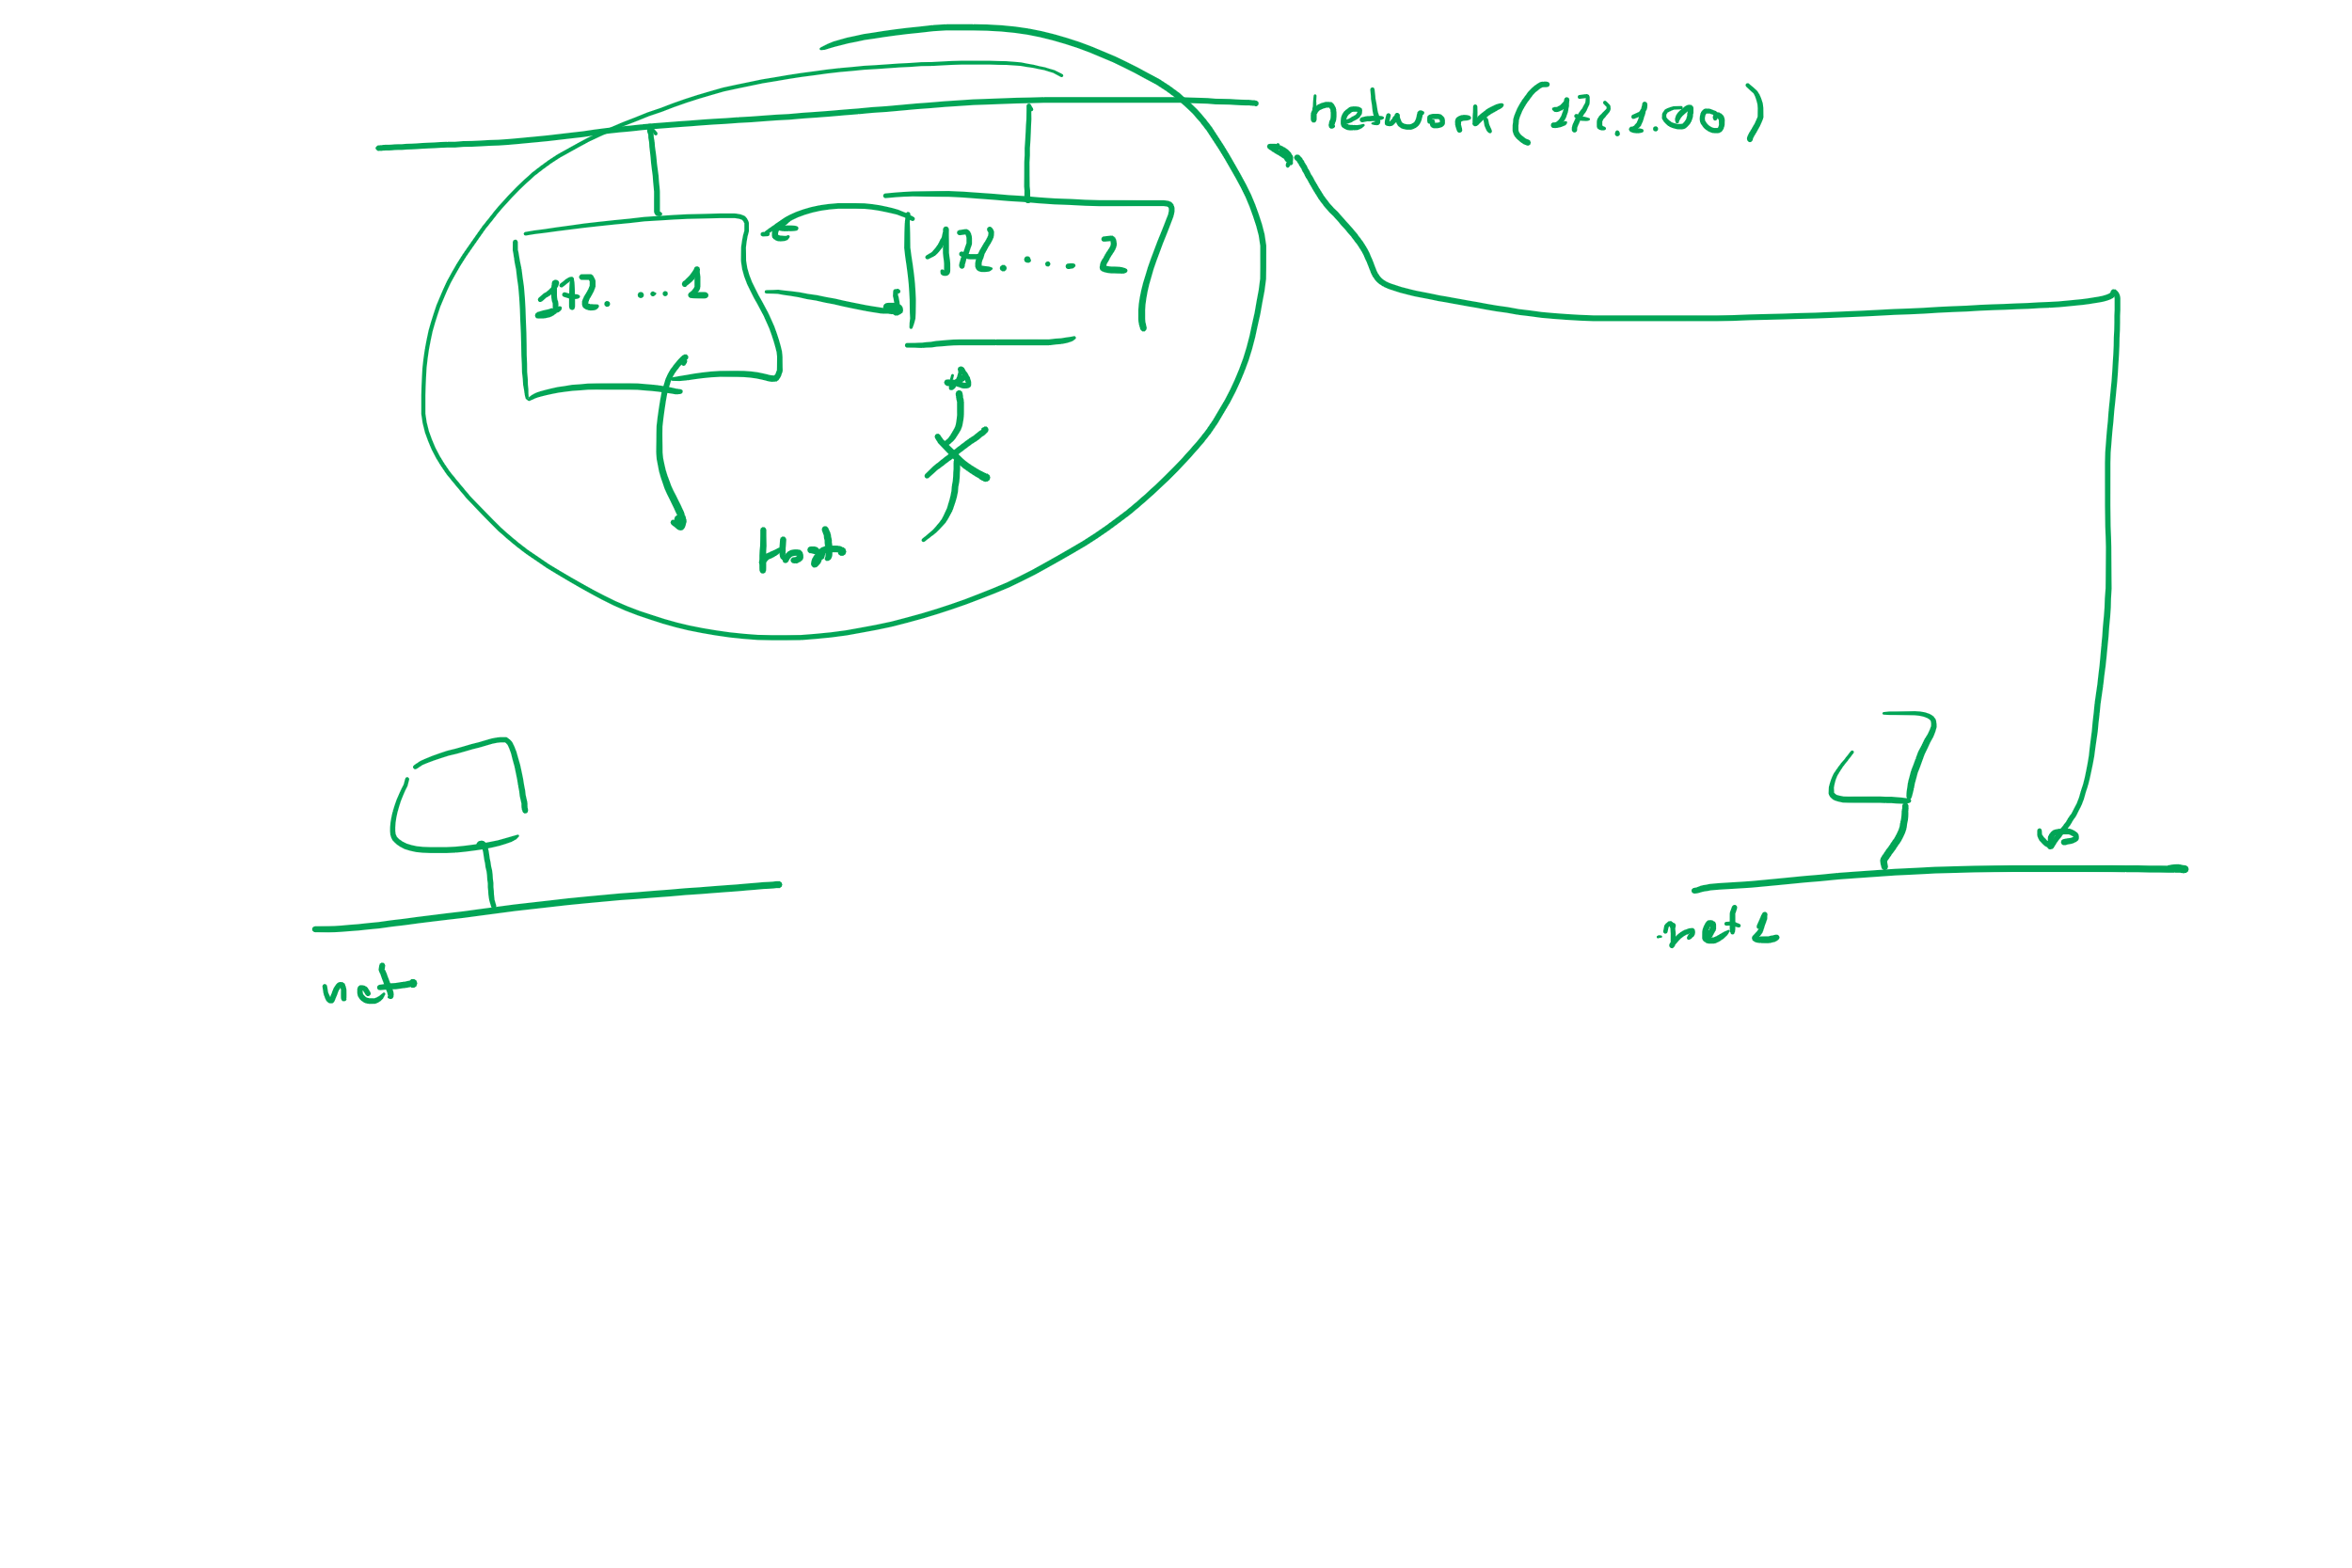 network (172.10.00)
172. ... 1
172. .... 2
Host
net
net 2